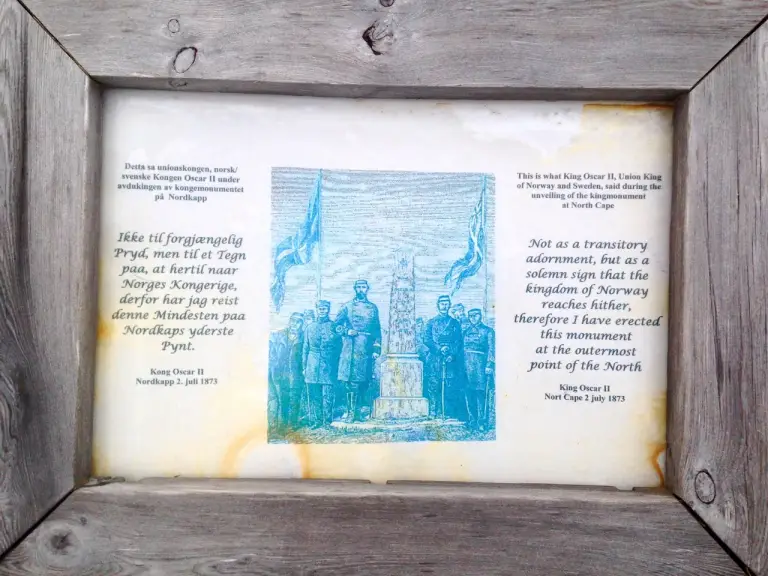 Detta sa unionskongen, norsk/
svenske Kongen Oscar II under
avdukingen av kongemonumentet
på Nordkapp
Ikke til forgjængelig
Pryd, men til et Tegn
paa, at hertil naar
Norges Kongerige,
derfor har jag reist
denne Mindesten paa
Nordkaps yderste
Pynt.
Kong Oscar II
Nordkapp 2. juli 1873
This is what King Oscar II, Union King
of Norway and Sweden, said during the
unveiling of the kingmonument
at North Cape
Not as a transitory
adornment, but as a
solemn sign that the
kingdom of Norway
reaches hither,
therefore I have erected
this monument
at the outermost
point of the North
King Oscar II
Nort Cape 2 july 1873